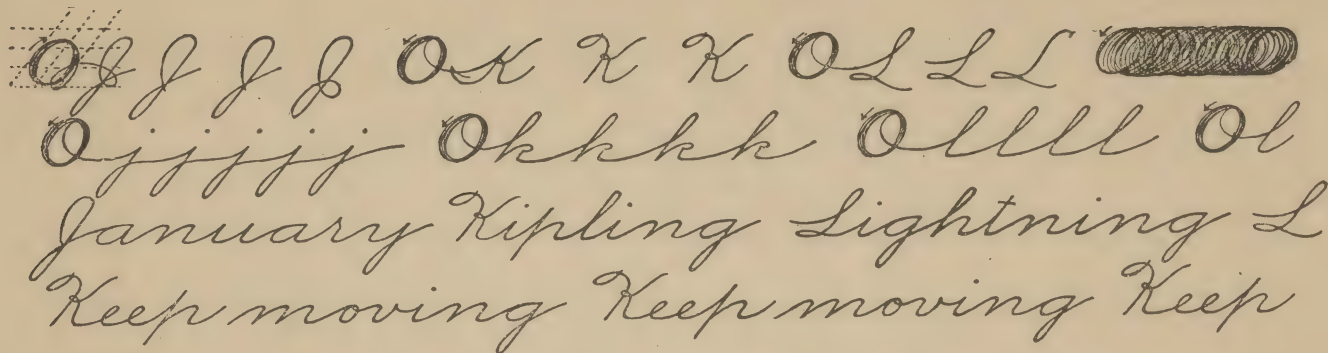 O J J J J O K K K O L L L
O j j j j j O k k k k O l l l l O l
January Kipling Lightning L
Keep moving Keep moving Keep